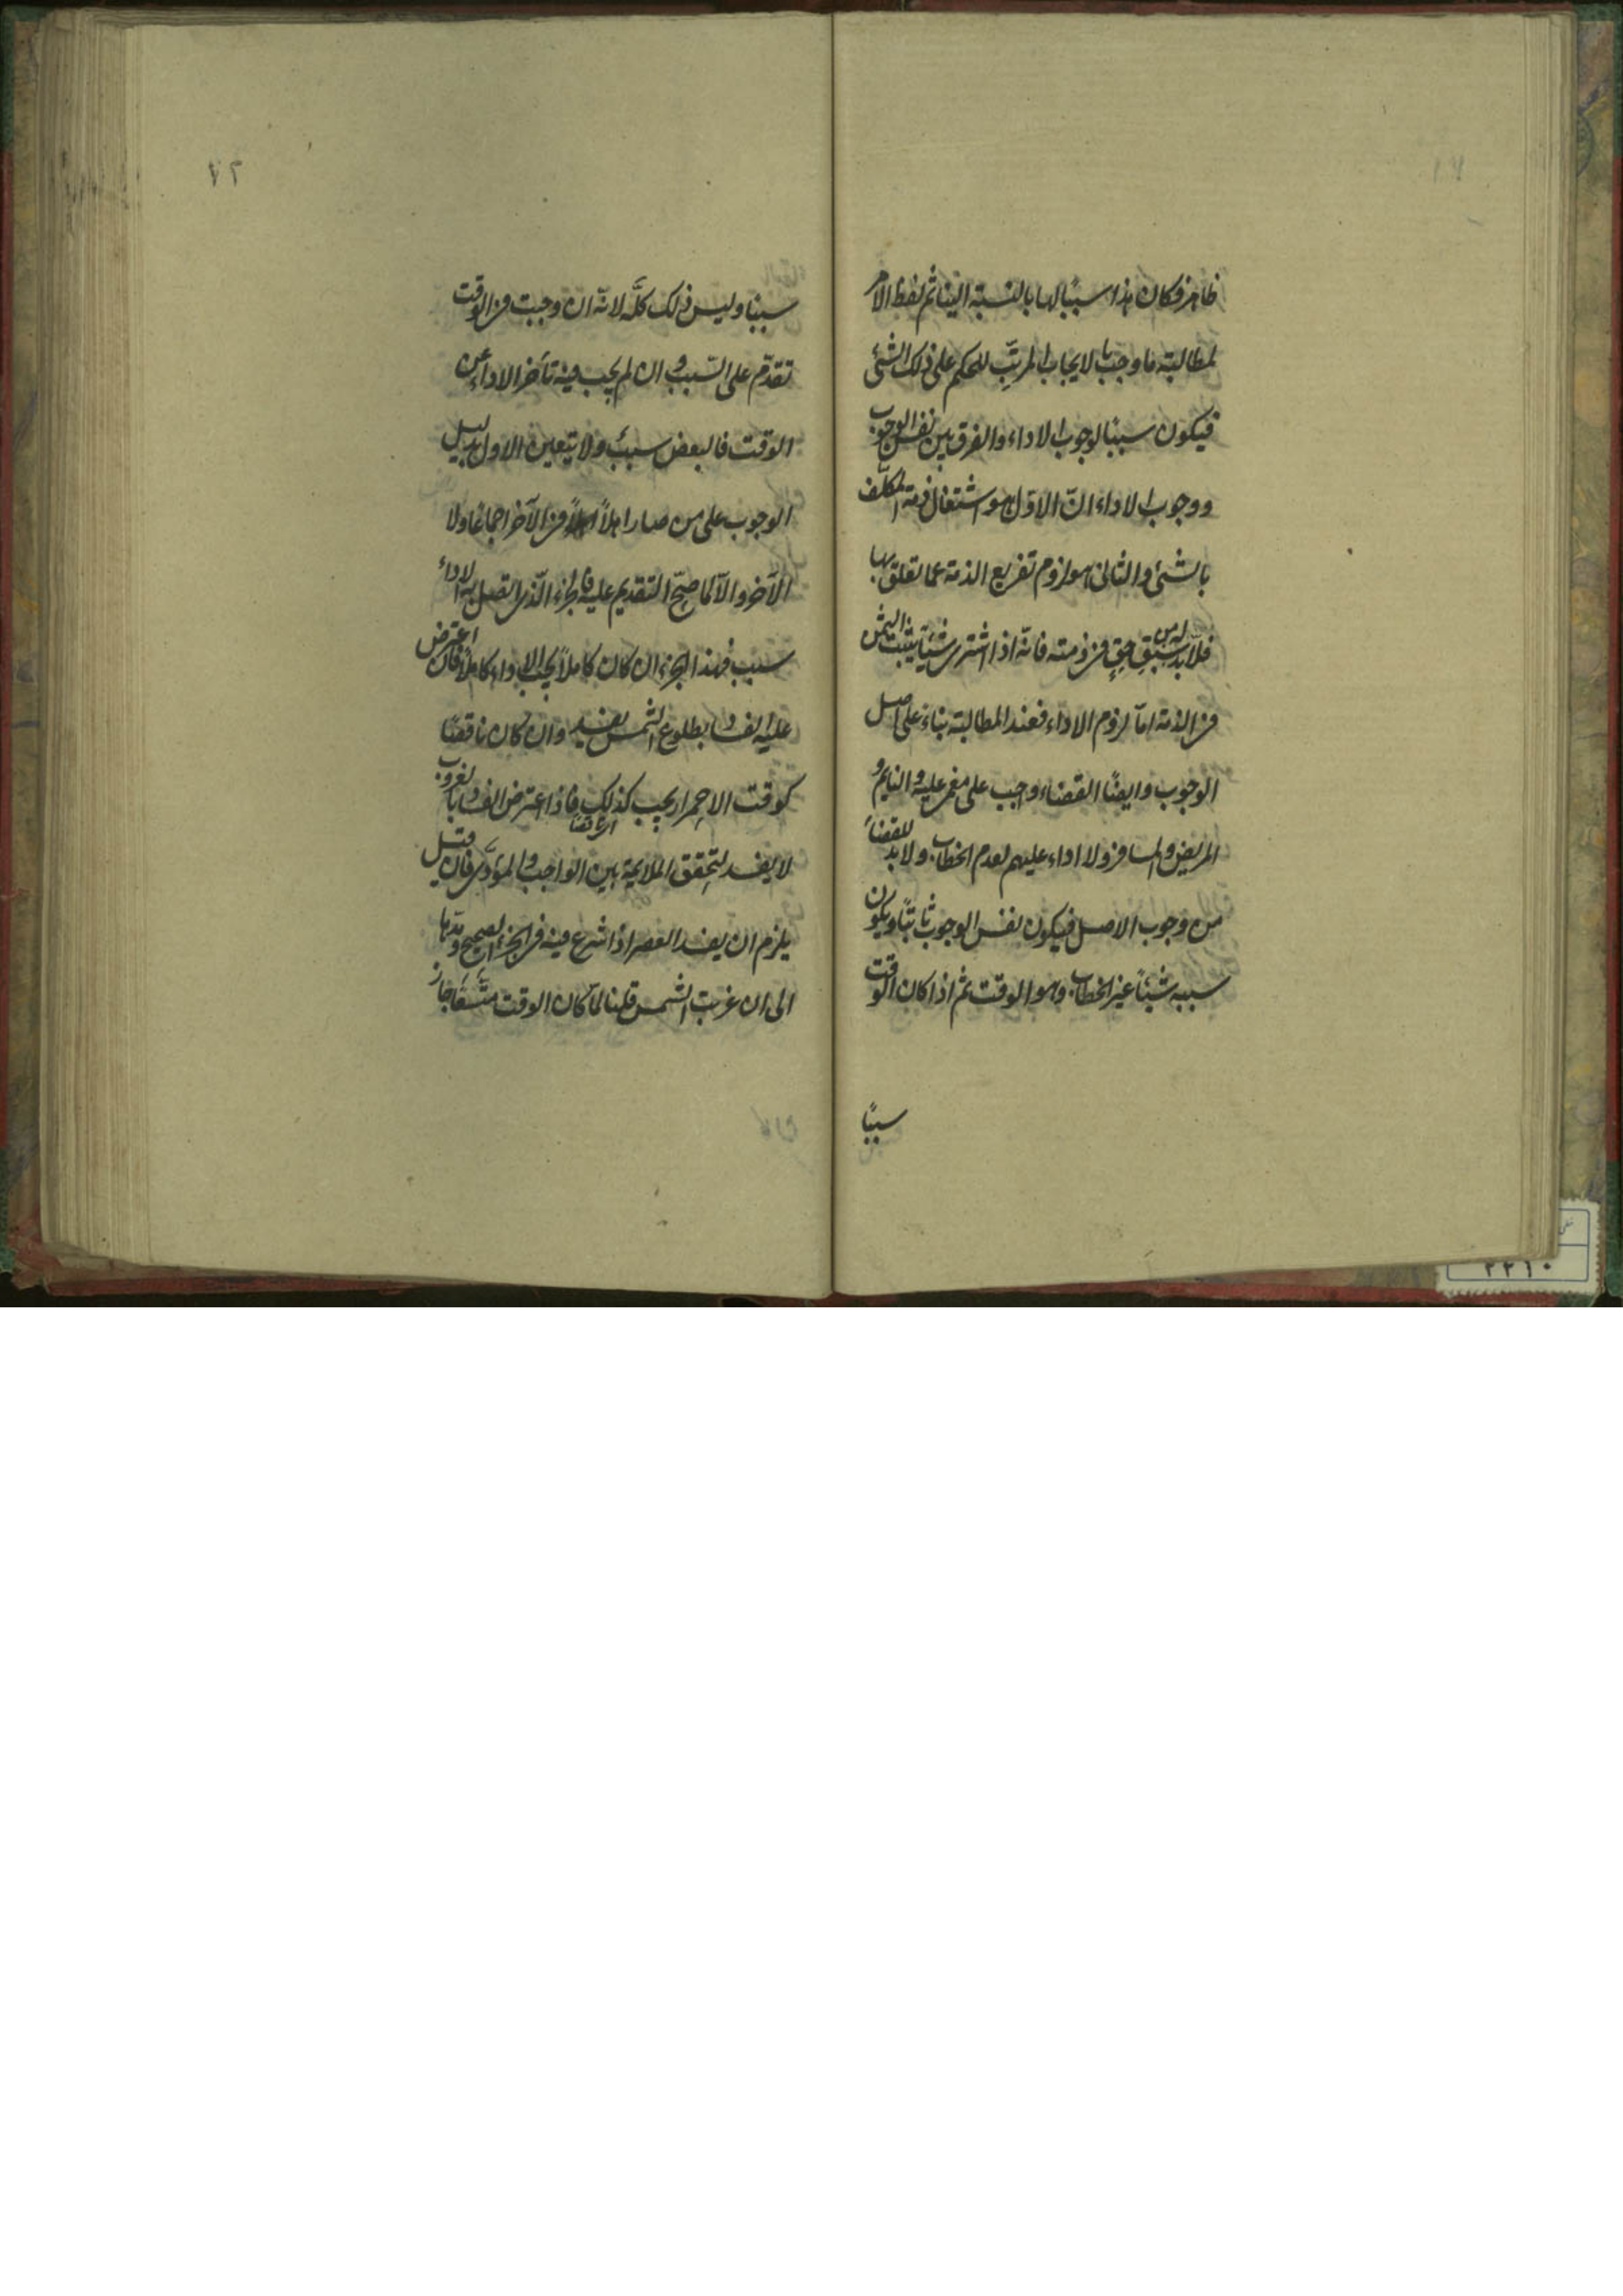 ظاهر فكان هذا سببًا لها بالنسبة الينا ثم لفظ الامر
لمطالبة ما وجب بالايجاب المرتّبِ للحكم على ذلك الشئ
فيكون سببًا لوجوب الاداء والفرق بين نفس الوجوب
ووجوب الاداء انّ الاوّل هو اشتغال ذمة المكلّف
بالشئ والثانى هو لزوم تفريغ الذمة عما تعلق بها
فلابدّ له من سبقِ حقٍ فى ذمته فانّه اذا اشترى شيئًا يثبت الثمن
فى الذمة امّا لزوم الاداء فعند المطالبة بناءً على اصل
الوجوب وايضًا القضاء واجب على مغمى عليه والنايم و
المريض والمسافر ولا اداء عليهم لعدم الخطاب ولابد للقضاء
من وجوب الاصل فيكون نفس الوجوب ثابتًا ويكون
سببه شيئًا غير الخطاب وهو الوقت ثم اذا كان الوقت
سببًا
٧٢
سببًا وليس ذلك كلَّه لانّه ان وجبت فى الوقت
تقدّم على السّبب وان لم يجب فيه تأخر الاداء عن
الوقت فالبعض سببٌ ولا يتعين الاول بدليل
الوجوب على من صار اهلاً فى الآخر اجماعًا ولا
الآخر والّا لما صحّ التقديم عليه فالجزء الّذى اتصل به الاداء
سبب فهذا الجزء ان كان كاملاً يجب الاداء كاملاً فان اعترض
عليه الفساد بطلوع الشمس يفسد وان كان ناقصًا
كوقت الاحمرار يجب كذلك اى ناقصًا فاذا اعترض الفساد بالغروب
لا يفسد لتحقق الملايمة بين الواجب والمؤدَّى فان قيل
يلزم ان يفسد العصر اذا شرع فيه فى الجزء الصحيح ومدّها
الى ان غربت الشمس قلنا لمّا كان الوقت متّسعًا جاز